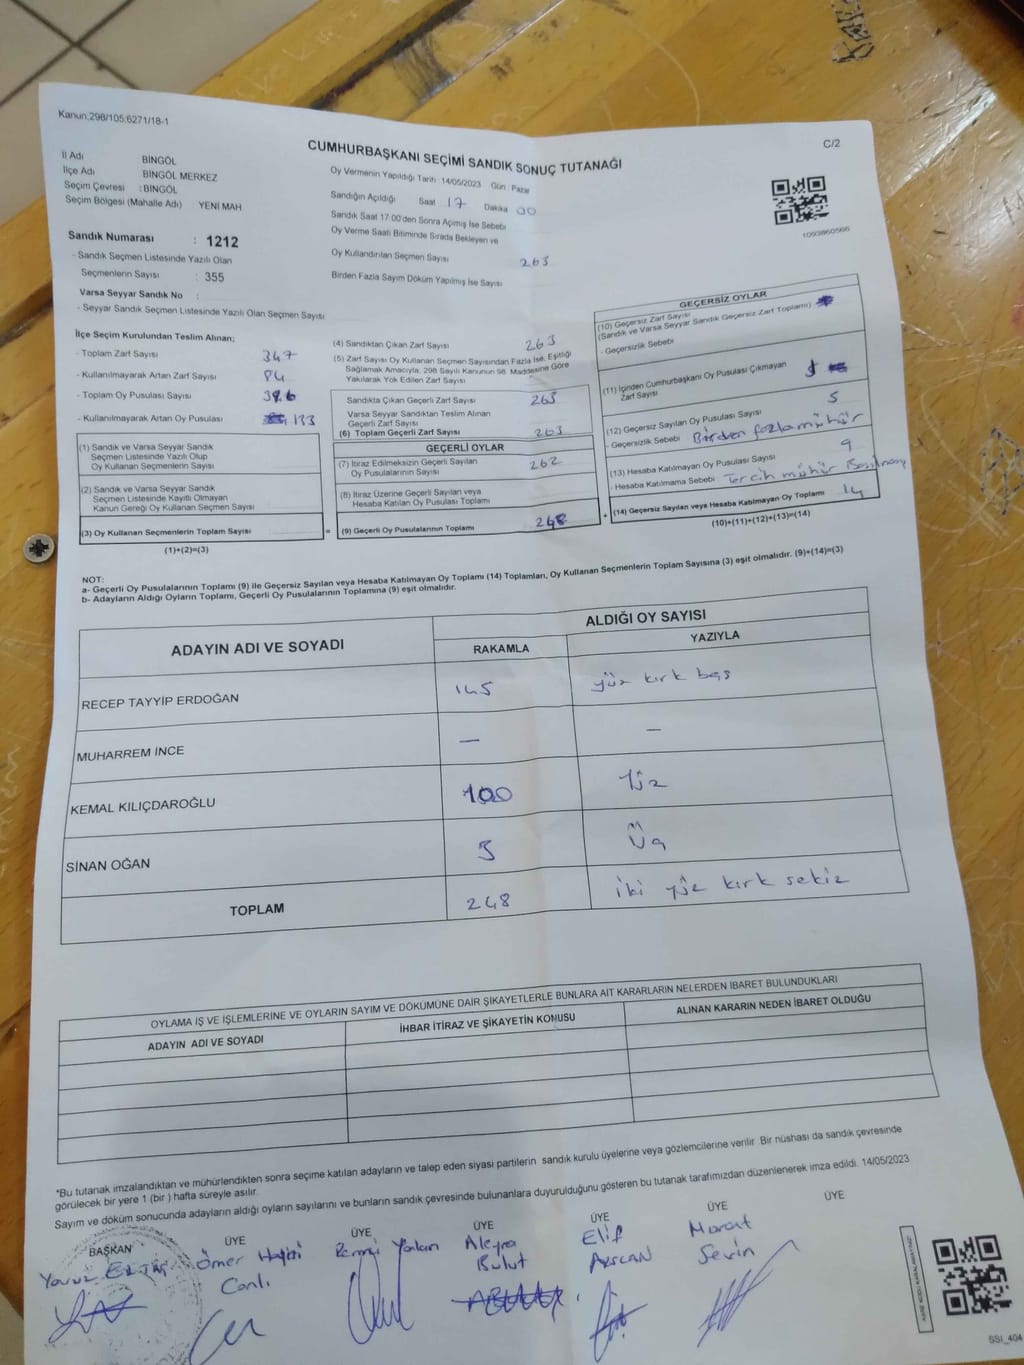 Kanun;298/105;6271/18-1
C/2
CUMHURBAŞKANI SEÇİMİ SANDIK SONUÇ TUTANAĞI
İl Adı BİNGÖL
İlçe Adı BİNGÖL MERKEZ
Seçim Çevresi :BİNGÖL
Seçim Bölgesi (Mahalle Adı) : YENİ MAH
Sandık Numarası : 1212
- Sandık Seçmen Listesinde Yazılı Olan
Seçmenlerin Sayısı : 355
Varsa Seyyar Sandık No :
- Seyyar Sandık Seçmen Listesinde Yazılı Olan Seçmen Sayısı
Oy Vermenin Yapıldığı Tarih :14/05/2023 Gün Pazar
Sandığın Açıldığı Saat 17 Dakika 00
Sandık Saat 17.00'den Sonra Açımış İse Sebebi
Oy Verme Saati Bitiminde Sırada Bekleyen ve
Oy Kullandırılan Seçmen Sayısı 263
Birden Fazla Sayım Döküm Yapılmış İse Sayısı
1093860566
İlçe Seçim Kurulundan Teslim Alınan;
- Toplam Zarf Sayısı 347
- Kullanılmayarak Artan Zarf Sayısı 84
- Toplam Oy Pusulası Sayısı
- Kullanılmayarak Artan Oy Pusulası 133
(1) Sandık ve Varsa Seyyar Sandık
Seçmen Listesinde Yazılı Olup
Oy Kullanan Seçmenlerin Sayısı
(2) Sandık ve Varsa Seyyar Sandık
Seçmen Listesinde Kayıtlı Olmayan
Kanun Gereği Oy Kullanan Seçmen Sayısı
(3) Oy Kullanan Seçmenlerin Toplam Sayısı
(1)+(2)=(3)
(4) Sandıktan Çıkan Zarf Sayısı 263
(5) Zarf Sayısı Oy Kullanan Seçmen Sayısından Fazla İse, Eşitliği
Sağlamak Amacıyla, 298 Sayılı Kanunun 98. Maddesine Göre
Yakılarak Yok Edilen Zarf Sayısı
Sandıkta Çıkan Geçerli Zarf Sayısı 263
Varsa Seyyar Sandıktan Teslim Alınan
Geçerli Zarf Sayısı
(6) Toplam Geçerli Zarf Sayısı 263
GEÇERLİ OYLAR
(7) İtiraz Edilmeksizin Geçerli Sayılan
Oy Pusulalarının Sayısı 262
(8) İtiraz Üzerine Geçerli Sayılan veya
Hesaba Katılan Oy Pusulası Toplamı
= (9) Geçerli Oy Pusulalarının Toplamı 248 +
GEÇERSİZ OYLAR
(10) Geçersiz Zarf Sayısı
(Sandık ve Varsa Seyyar Sandık Geçersiz Zarf Toplamı)
- Geçersizlik Sebebi
(11) İçinden Cumhurbaşkanı Oy Pusulası Çıkmayan
Zarf Sayısı
(12) Geçersiz Sayılan Oy Pusulası Sayısı 5
- Geçersizlik Sebebi Birden fazla mühür
(13) Hesaba Katılmayan Oy Pusulası Sayısı 9
- Hesaba Katılmama Sebebi Tercih mühür Basılmamış
(14) Geçersiz Sayılan veya Hesaba Katılmayan Oy Toplamı 14
(10)+(11)+(12)+(13)=(14)
NOT:
a- Geçerli Oy Pusulalarının Toplamı (9) ile Geçersiz Sayılan veya Hesaba Katılmayan Oy Toplamı (14) Toplamları, Oy Kullanan Seçmenlerin Toplam Sayısına (3) eşit olmalıdır. (9)+(14)=(3)
b- Adayların Aldığı Oyların Toplamı, Geçerli Oy Pusulalarının Toplamına (9) eşit olmalıdır.
ADAYIN ADI VE SOYADI
ALDIĞI OY SAYISI
RAKAMLA YAZIYLA
RECEP TAYYİP ERDOĞAN 145 yüz kırk beş
MUHARREM İNCE — —
KEMAL KILIÇDAROĞLU 100 Yüz
SİNAN OĞAN 3 Üç
TOPLAM 248 iki yüz kırk sekiz
OYLAMA İŞ VE İŞLEMLERİNE VE OYLARIN SAYIM VE DÖKÜMÜNE DAİR ŞİKAYETLERLE BUNLARA AİT KARARLARIN NELERDEN İBARET BULUNDUKLARI
ADAYIN ADI VE SOYADI
İHBAR İTİRAZ VE ŞİKAYETİN KONUSU
ALINAN KARARIN NEDEN İBARET OLDUĞU
*Bu tutanak imzalandıktan ve mühürlendikten sonra seçime katılan adayların ve talep eden siyasi partilerin sandık kurulu üyelerine veya gözlemcilerine verilir. Bir nüshası da sandık çevresinde
görülecek bir yere 1 (bir ) hafta süreyle asılır.
Sayım ve döküm sonucunda adayların aldığı oyların sayılarını ve bunların sandık çevresinde bulunanlara duyurulduğunu gösteren bu tutanak tarafımızdan düzenlenerek imza edildi. 14/05/2023
BAŞKAN ÜYE ÜYE ÜYE ÜYE ÜYE ÜYE
Ömer
Canlı
Remzi Yalan
Aleyna
Bulut
Elif
Arscan
Murat
Sevin
SSİ_404